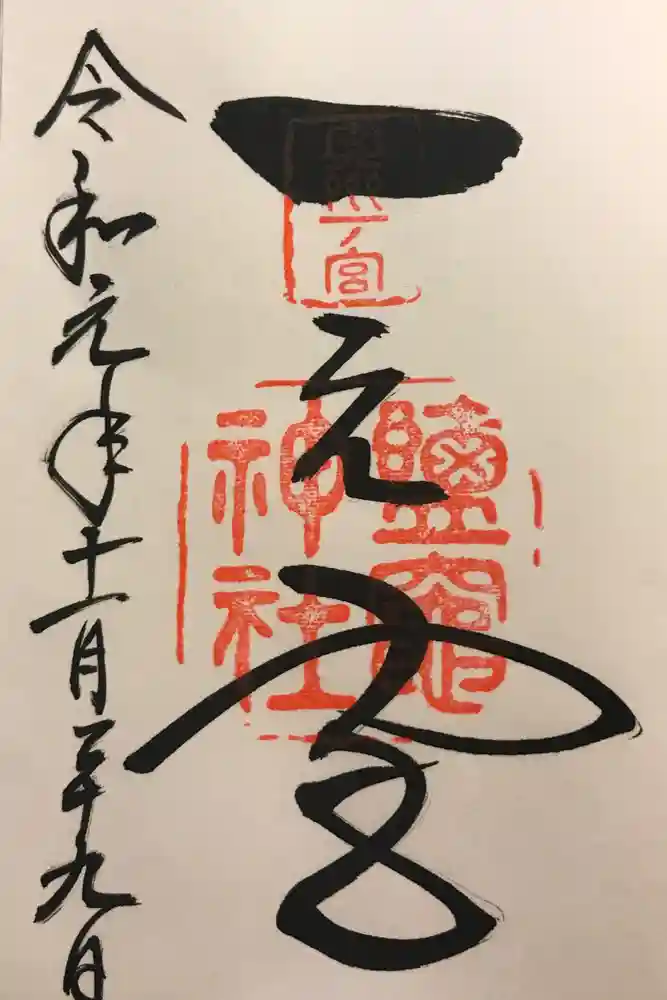 一之宮
一ノ宮
鹽竈
神社
令和元年十一月二十九日